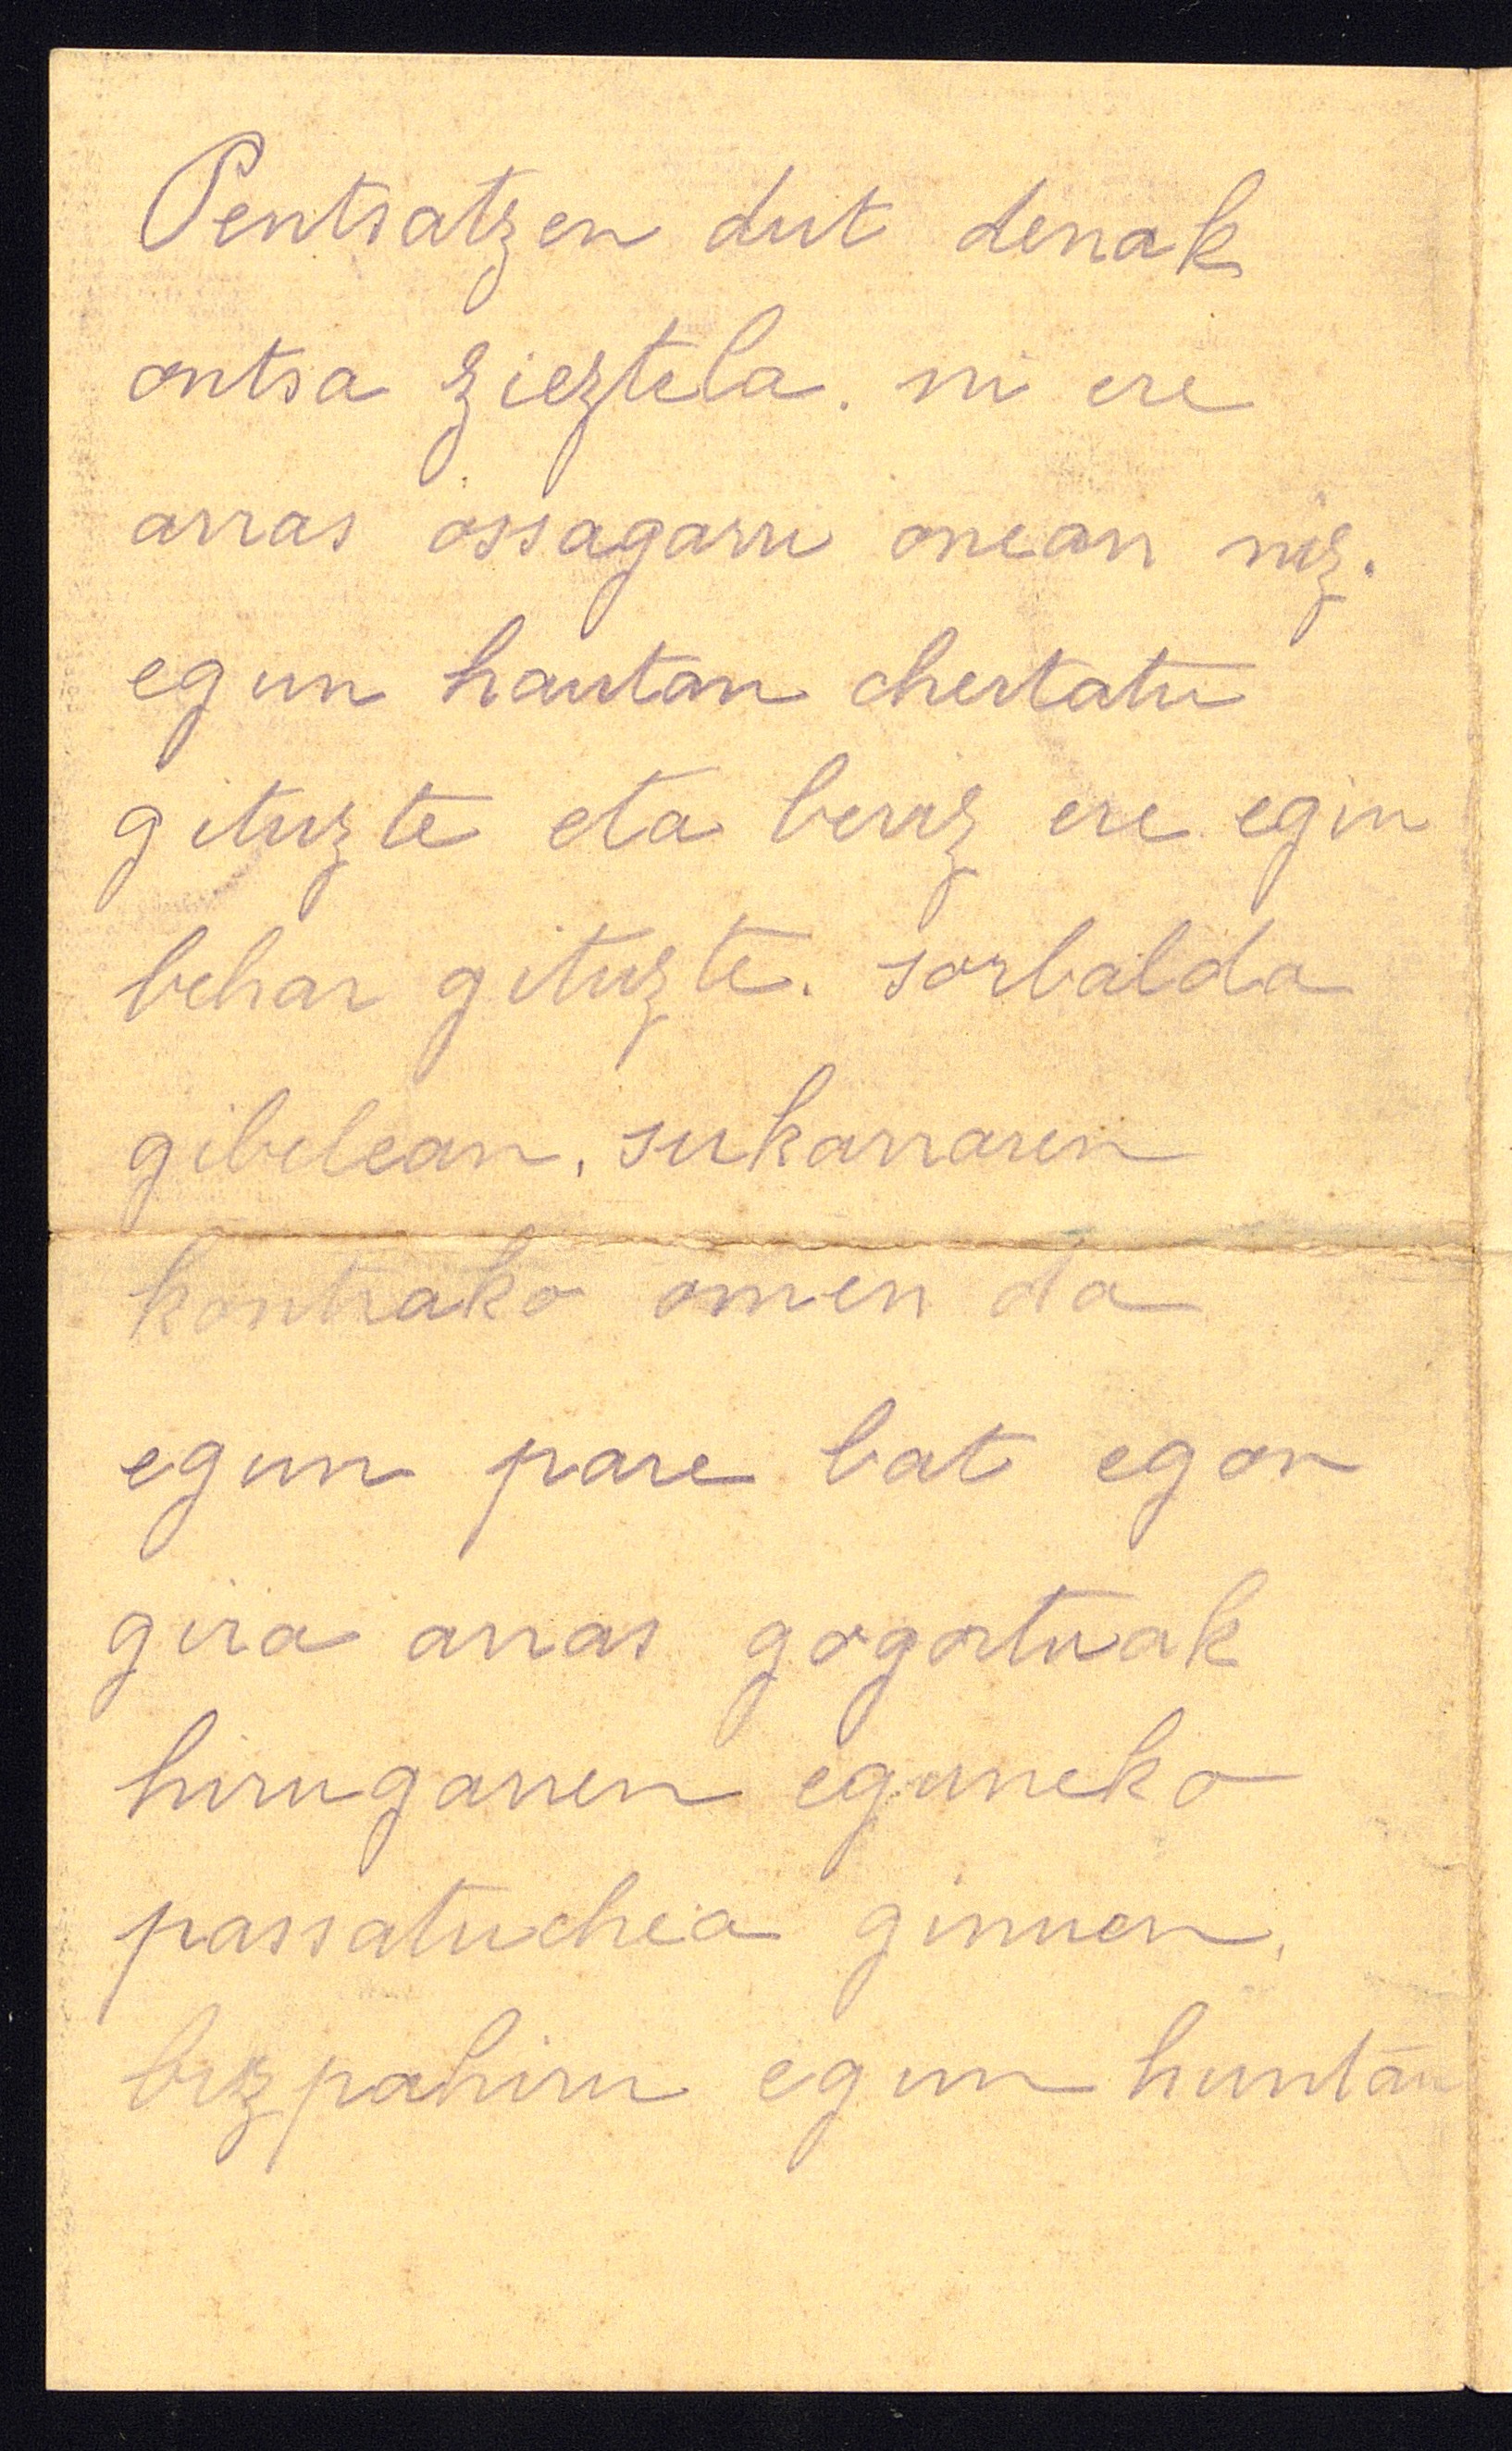 Pentsatzen dut denak
ontsa zieztela. ni ere
arras ossagarri onean niz.
egun hautan chertatu
gituzte eta berriz ere egin
behar gituzte. sorbalda
gibelean, sukarraren
kontrako omen da
egun pare bat egon
gira arras gogortuak
hirugarren eguneko
passatuchea ginuen.
bizpahiru egun huntan